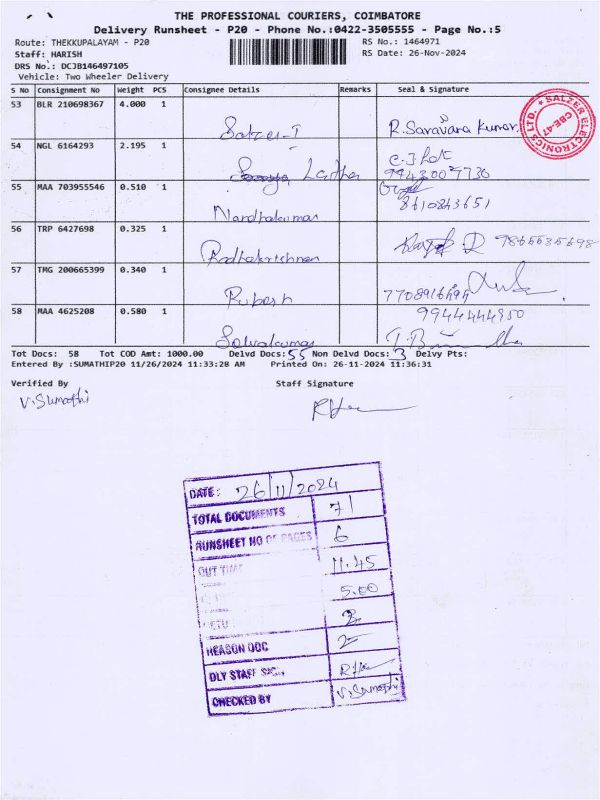 THE PROFESSIONAL COURIERS, COIMBATORE
Delivery Runsheet - P20 - Phone No.:0422-3505555 - Page No.:5
Route: THEKKUPALAYAM - P20 RS No.: 1464971
Staff: HARISH RS Date: 26-Nov-2024
DRS No.: DCJB146497105
Vehicle: Two Wheeler Delivery
S No Consignment No Weight PCS Consignee Details Remarks Seal & Signature
53 BLR 210698367 4.000 1 R. Saravana Kumar.
SALZER ELECTRONICS LTD. CBE-47
54 NGL 6164293 2.195 1 Latha 9943009730
55 MAA 703955546 0.510 1 Nandhakumar 8610843651
56 TRP 6427698 0.325 1 Radhakrishnan
57 TMG 200665399 0.340 1 Rupesh
58 MAA 4625208 0.580 1 Selvakumar 9944444950
Tot Docs: 58 Tot COD Amt: 1000.00 Delvd Docs: 55 Non Delvd Docs: 3 Delvy Pts:
Entered By :SUMATHIP20 11/26/2024 11:33:28 AM Printed On: 26-11-2024 11:36:31
Verified By Staff Signature
V. Sumathi
DATE: 26/11/2024
TOTAL DOCUMENTS 71
RUNSHEET NO OF PAGES 6
OUT TIME 11.45
5.00
REASON DOC 2
DLY STAFF
CHECKED BY V. Sumathi